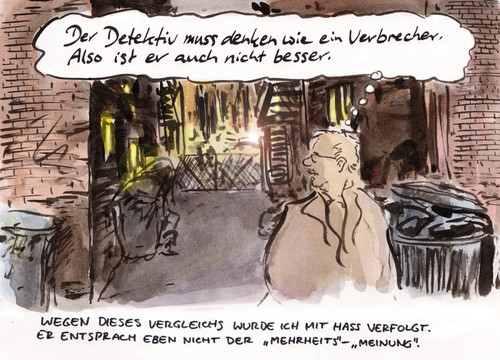 Der Detektiv muss denken wie ein Verbrecher.
Also ist er auch nicht besser.
WEGEN DIESES VERGLEICHS WURDE ICH MIT HASS VERFOLGT.
ER ENTSPRACH EBEN NICHT DER „MEHRHEITS“-„MEINUNG“.